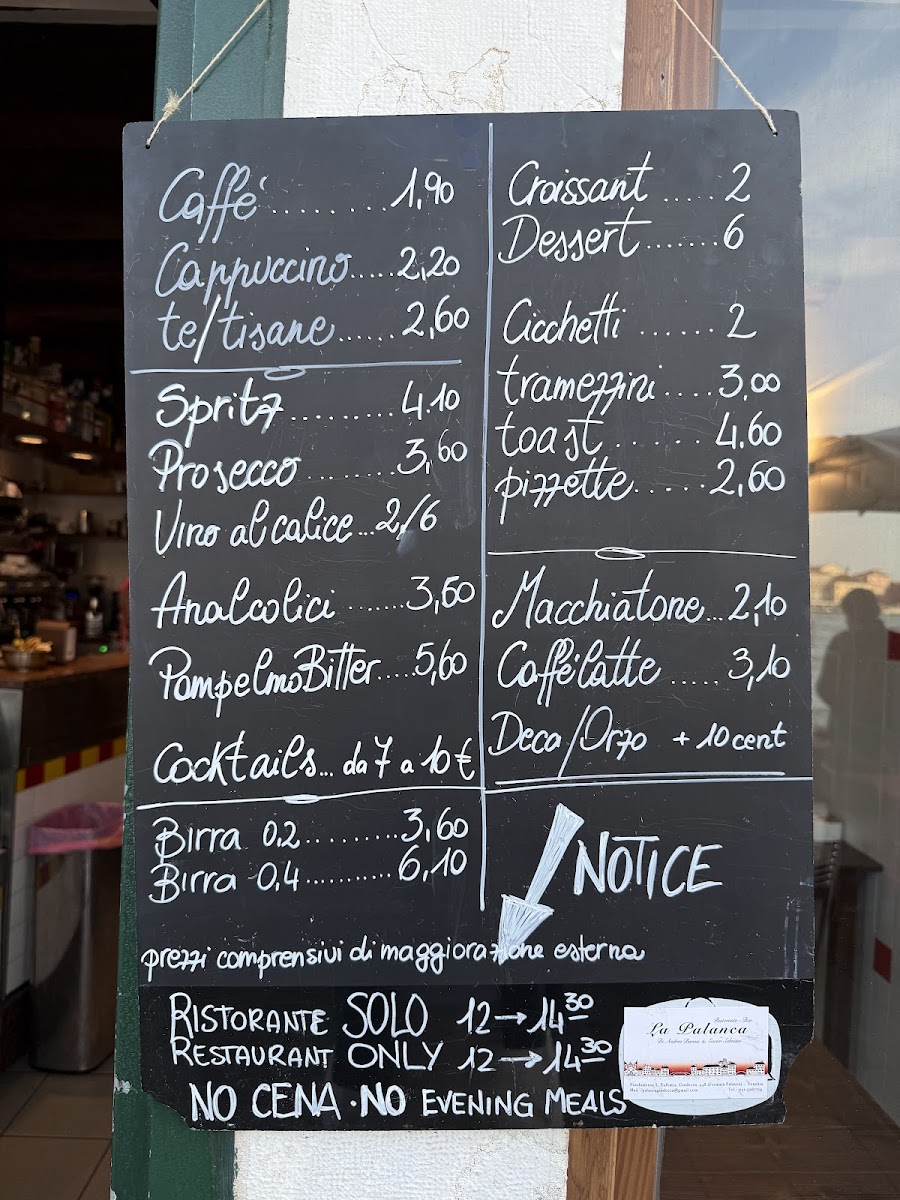 Caffé ......... 1,90
Cappuccino ..... 2,20
te/tisane ...... 2,60
Spritz ......... 4.10
Prosecco ........ 3,60
Vino al calice ... 2/6
Analcolici ....... 3,60
Pompelmo Bitter ..... 5,60
Cocktails... da 7 a 10 €
Birra 0,2 .......... 3,60
Birra 0,4 .......... 6,10
Croissant ..... 2
Dessert ...... 6
Cicchetti ...... 2
tramezzini .... 3,00
toast ....... 4,60
pizzette ..... 2,60
Macchiatone ... 2,10
Caffélatte ..... 3,10
Deca/Orzo + 10 cent
NOTICE
prezzi comprensivi di maggiorazione esterna
RISTORANTE SOLO 12→14 30
RESTAURANT ONLY 12→14 30
NO CENA · NO EVENING MEALS
Ristorante - Bar
La Palanca